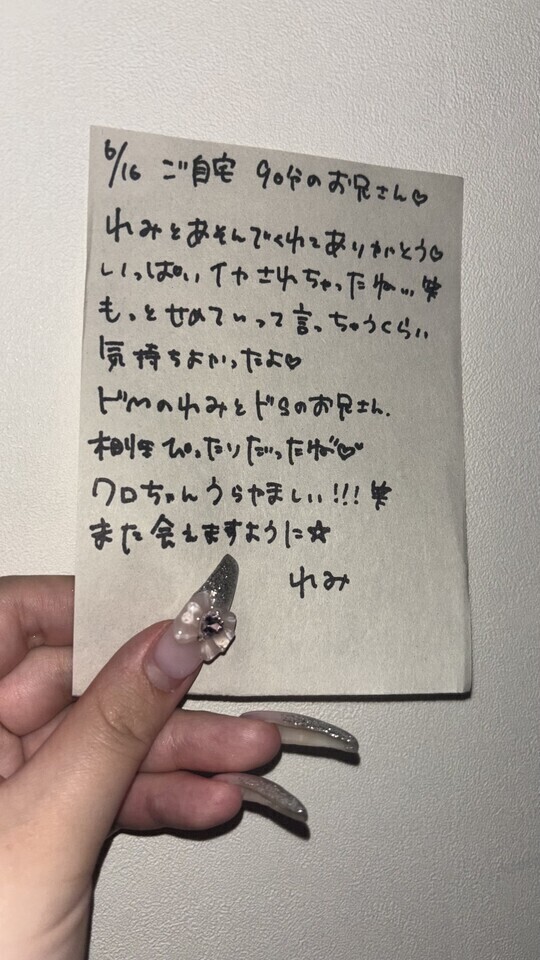 6/16 ご自宅 90分のお兄さん♡
れみとあそんでくれてありがとう♡
いっぱいイカされちゃったねぃ、、笑
もっとせめてぃって言っちゃうくらい
気持ちよかったよ♡
ドMのれみとドSのお兄さん、
相性ぴったりだったね♡
クロちゃんうらやましい!!!笑
また会えますように☆
れみ